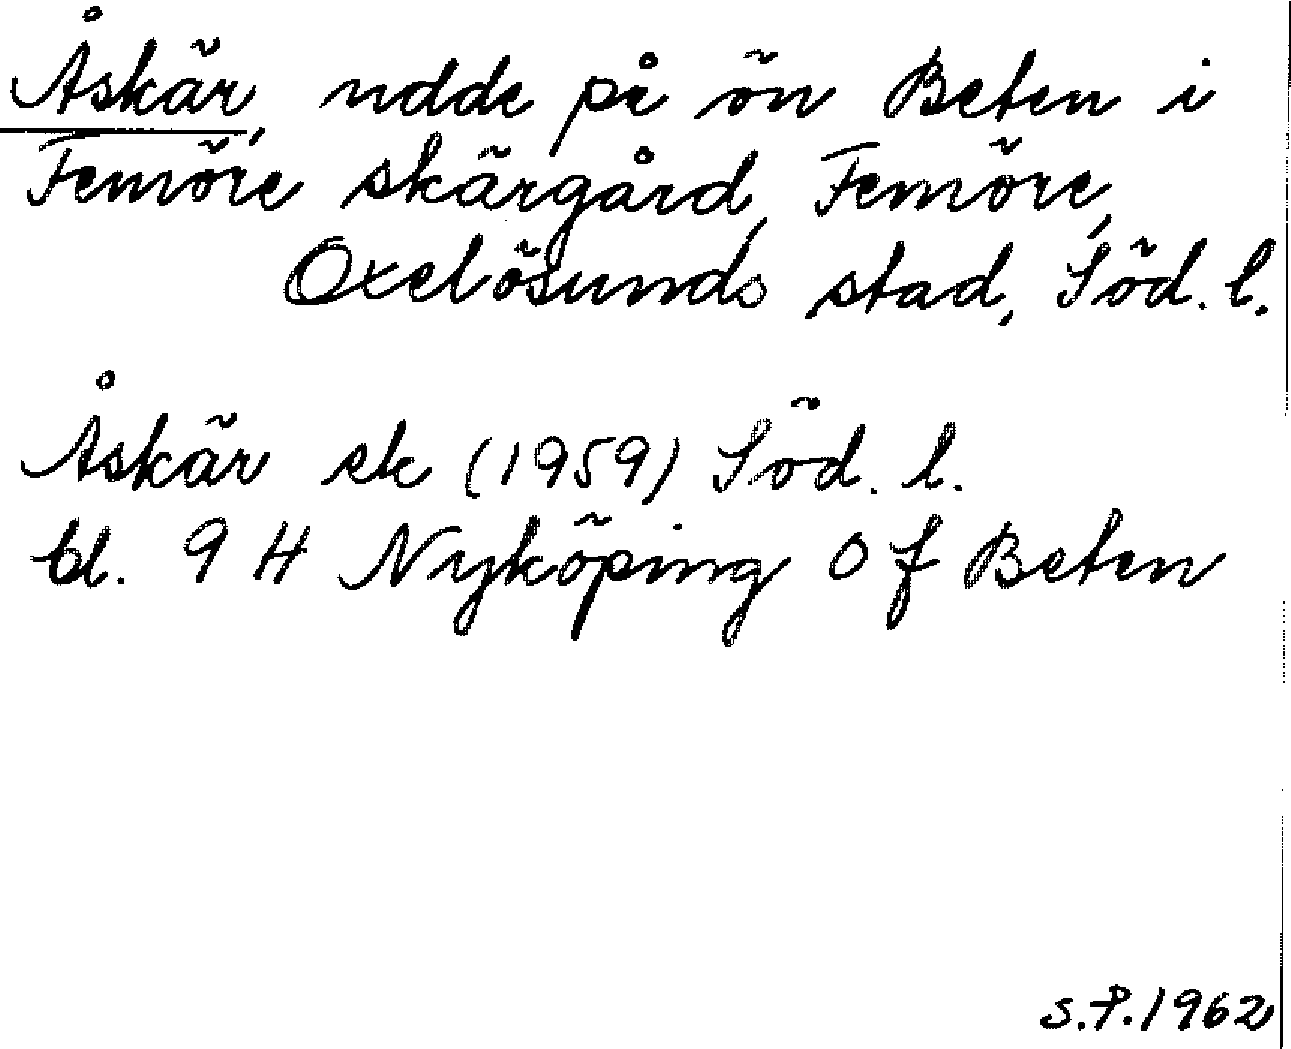 Åskär, udde på ön Beten i
Femöre skärgård, Femöre,
Oxelösunds stad, Söd. l.
Åskär ek (1959) Söd. l.
bl. 9 H Nyköping O f Beten
S.P. 1962